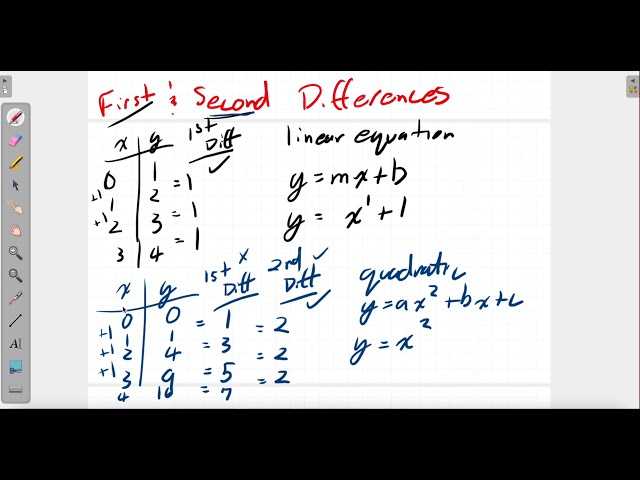 First & Second Differences
x y 1st Diff ✓ linear equation
0 1 = 1 y = mx + b
+1 1 2
+1 2 3 = 1 y = x¹ + 1
3 4 = 1
x y 1st Diff x 2nd Diff ✓ ✓ quadratic
y = ax² + bx + c
0 0 = 1 = 2
+1 1 1 y = x²
+1 2 4 = 3 = 2
+1 3 9 = 5 = 2
4 16 = 7